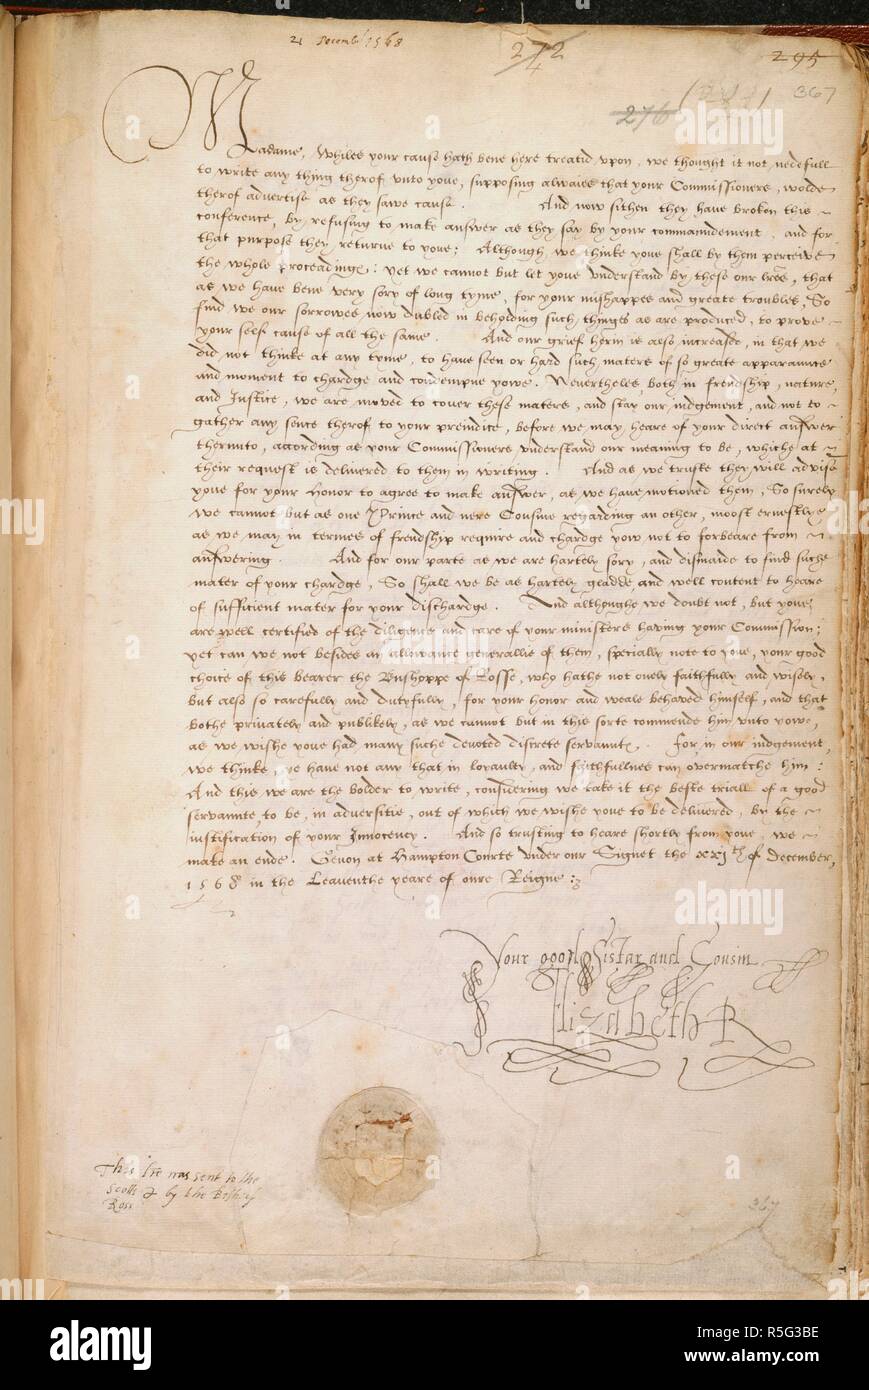 21 Decembr 1568
242
4
295
276
367
Madame, Whiles your cause hath bene here treatid vpon, we thought it not nedefull
to write any thing therof vnto youe, supposing alwaies that your Commissioners, wolde
therof advertise as they sawe cause. And now sithen they have broken this
conference, by refusing to make answer as they say by your commaundement, and for
that purpose they returne to youe; Although we thinke youe shall by them perceive
the whole proceadinges: yet we cannot but let youe vnderstand by these our lres, that
as we have bene very sory of long tyme, for your mishappes and greate troubles, So
find we our sorrowes now dubled in beholding such thinges as are produced, to prove
your self cause of all the same. And our grief herin is also increased, in that we
did not thinke at any tyme, to have seen or hard such maters of so greate apparaunce
and moment to chardge and condempne yowe. Nevertheles, both in frendship, nature,
and Justice, we are moved to cover these maters, and stay our iudgement, and not to
gather any sence therof to your preiudice, before we may heare of your direct answer
therunto, according as your Commissioners vnderstand our meaning to be, whiche at
their request is delivered to them in writing. And as we truste they will advise
youe for your Honor to agree to make answer, as we have motioned them, So surely
we cannot but as one Prince and nere Cousine regarding an other, moost ernestly
as we may in termes of frendship require and chardge yow not to forbeare from
answering. And for our parte as we are hartely sory, and dismaide to find suche
mater of your chardge, So shall we be as hartely gladde and well content to heare
of sufficient mater for your dischardge. And althoughe we doubt not, but youe
are well certified of the diligence and care of your ministers having your Commission;
yet can we not besides an allowance generallie of them, specially note to youe, your good
choice of this bearer the Busshoppe of Rosse, who hathe not onely faithfully and wisely,
but also so carefully and dutyfully, for your honor and weale behaved himself, and that
bothe privately and publikely, as we cannot but in this sorte commende him vnto yowe,
as we wishe youe had many suche devoted discrete servauntes. For in our iudgement,
we thinke, ye have not any that in loyaulty, and faithfullnes can overmatche him:
And this we are the bolder to write, considering we take it the beste triall of a good
servaunte, to be, in adversitie, out of which we wishe youe to be delivered, by the
iustification of your Innocency. And so trusting to heare shortly from youe, we
make an ende. Geven at Hampton Courte vnder our Signet the xxjth of December,
1568 in the Leaventhe yeare of oure Reigne:
Your good Sistar and Cousin
Elizabeth R
This lre was sent to the
Scotts Q by the Bishop of
Ross
367
alamy
Image ID: R5G3BE
www.alamy.com